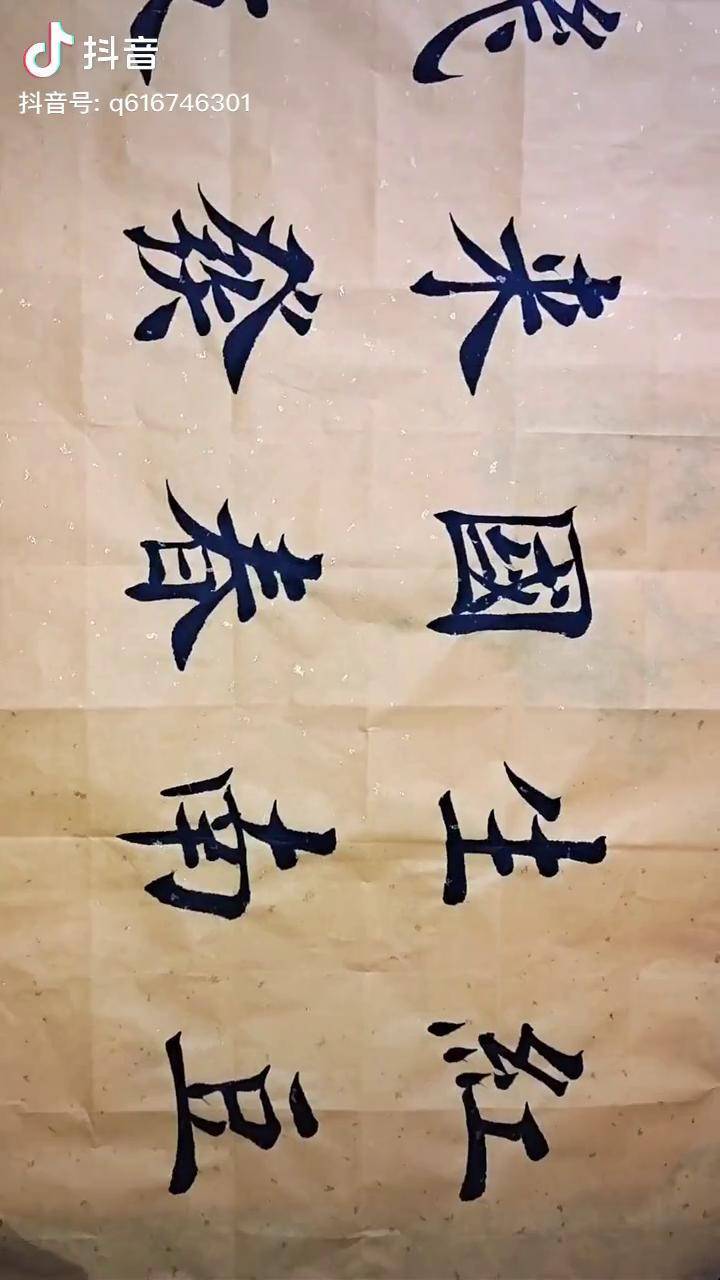 抖音
抖音号: q616746301
紅豆
生南
國春
来發